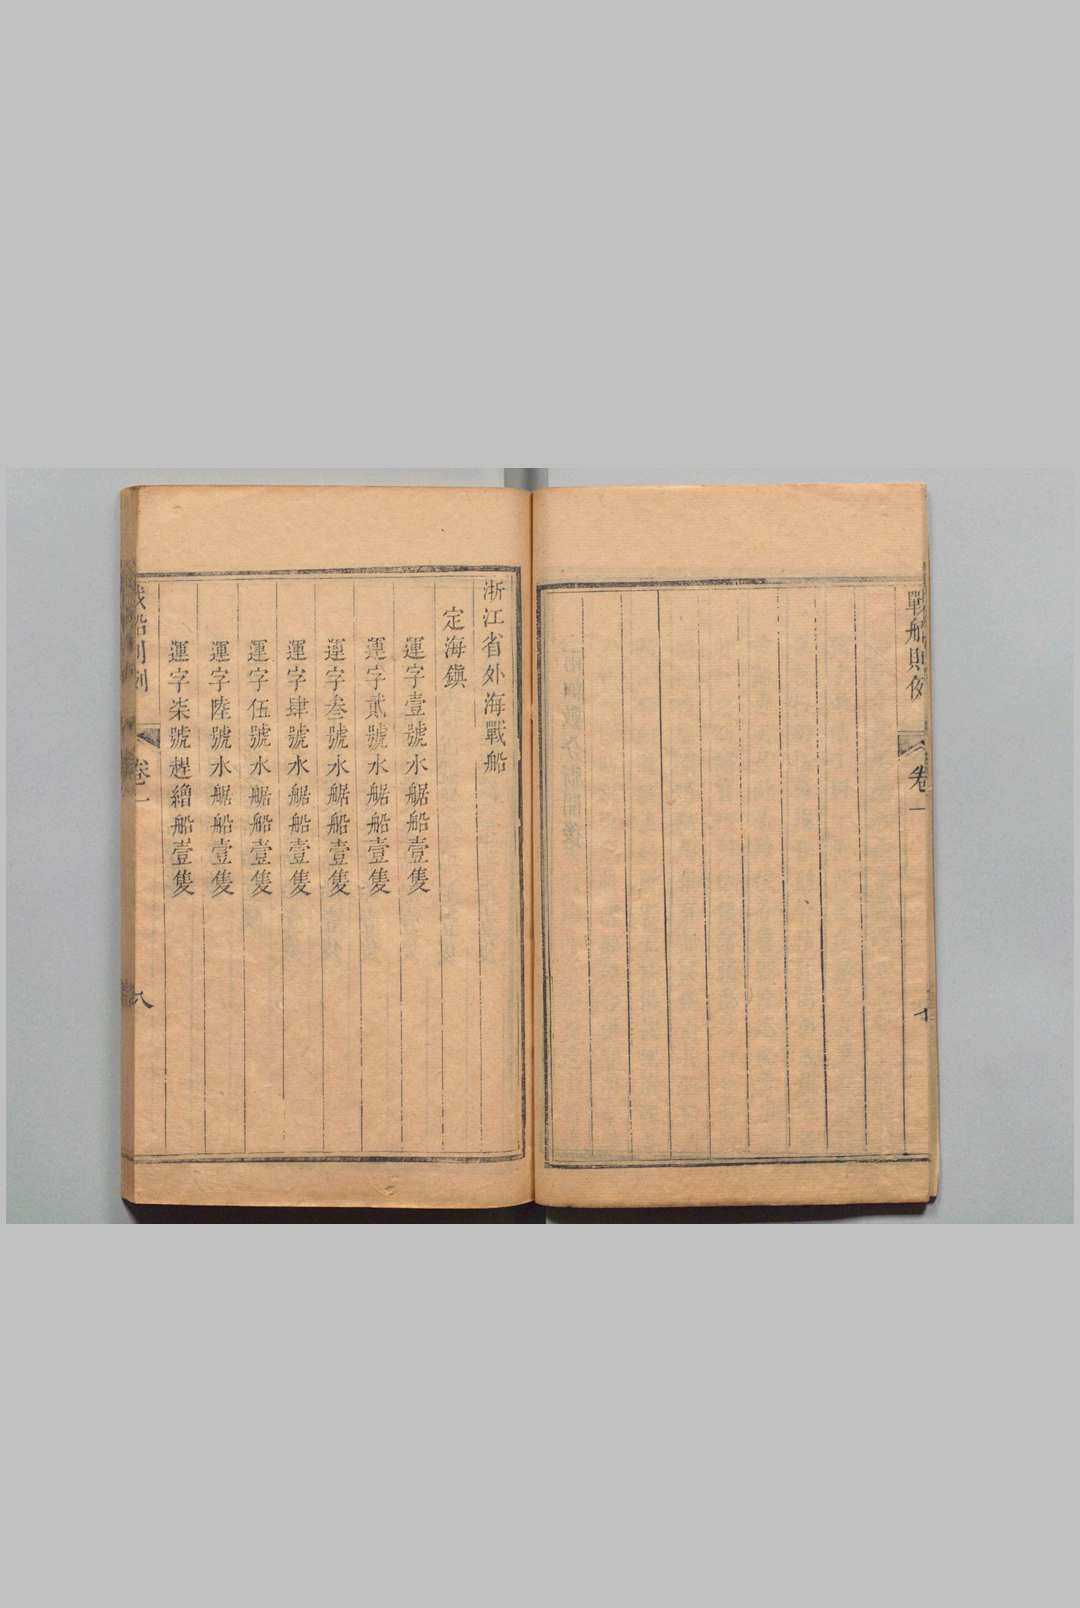 戰船則例
卷一
浙江省外海戰船
定海鎮
運字壹號水艍船壹隻
運字貳號水艍船壹隻
運字叁號水艍船壹隻
運字肆號水艍船壹隻
運字伍號水艍船壹隻
運字陸號水艍船壹隻
運字柒號趕繒船壹隻
戰船則例
卷一
八